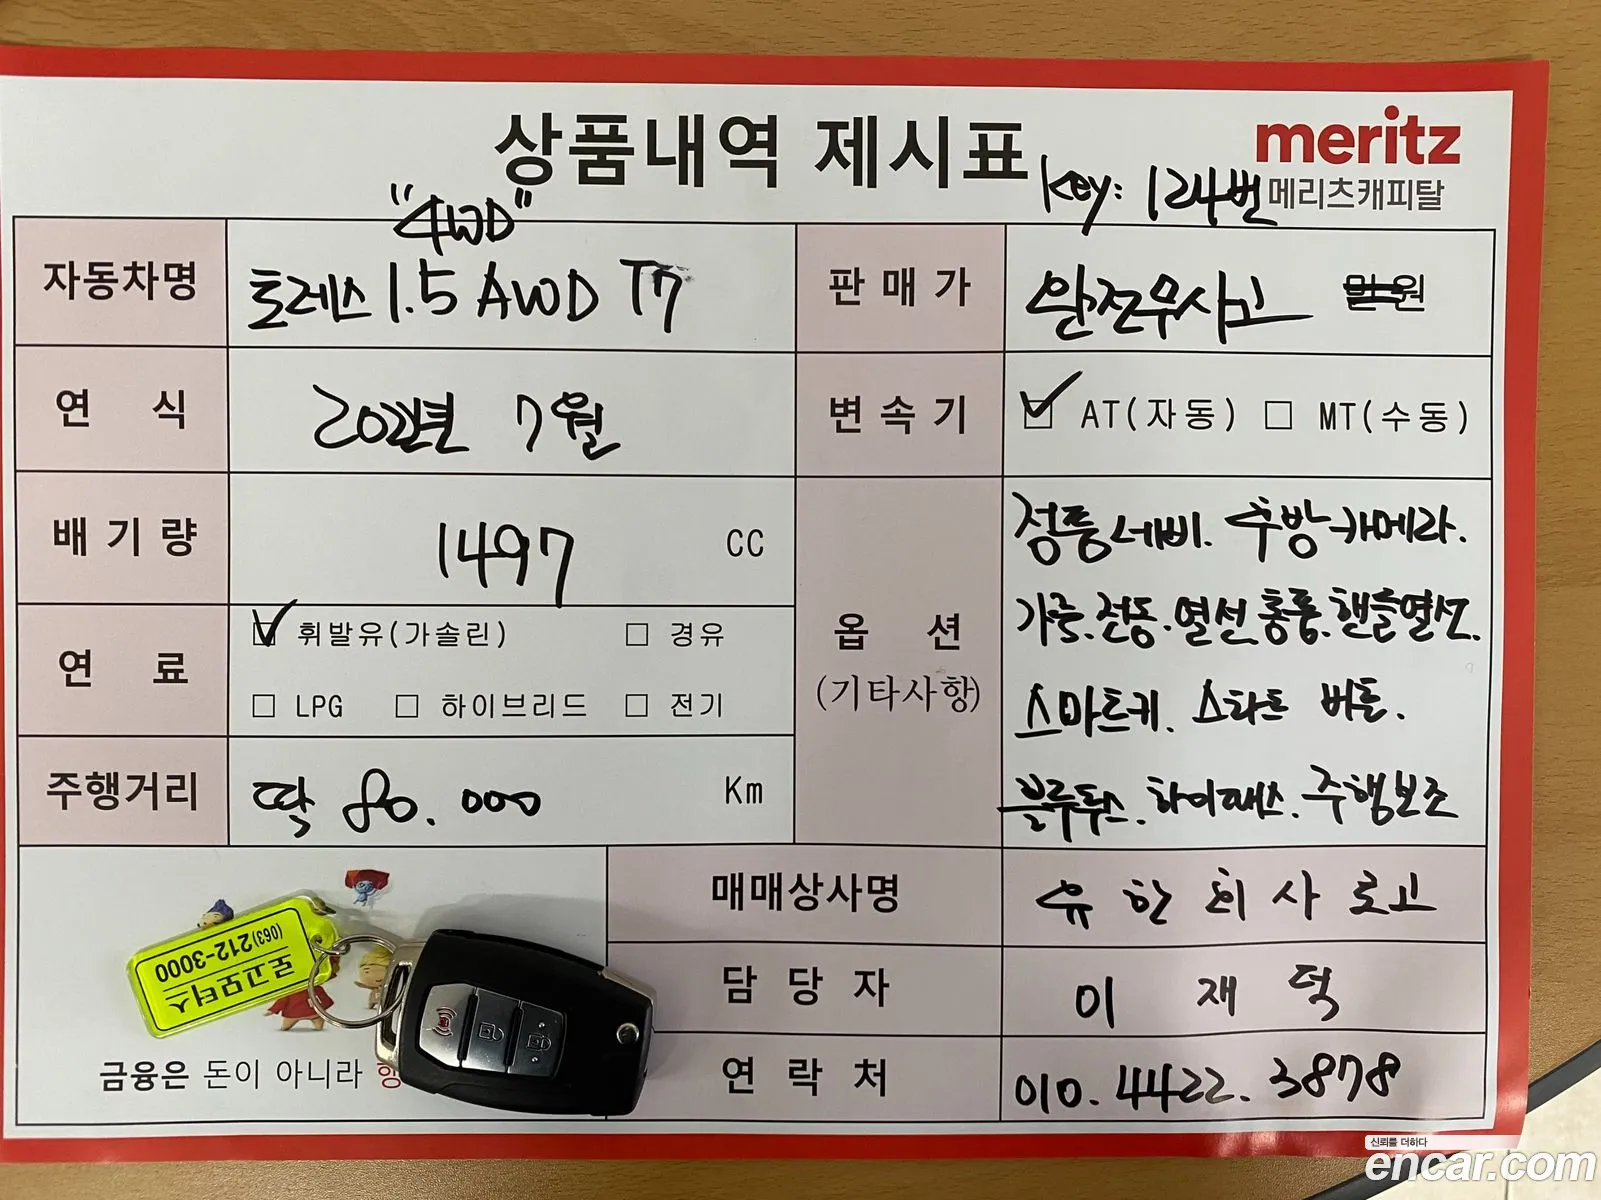 상품내역 제시표
meritz
메리츠캐피탈
Key: 124번
"4WD"
자동차명 토레스 1.5 AWD T7
판매가 완전무사고 만원
연식 2022년 7월
변속기 AT(자동) MT(수동)
배기량 1497 CC
연료 휘발유(가솔린) 경유
LPG 하이브리드 전기
주행거리 딱 80.000 Km
옵션
(기타사항)
정품네비. 후방카메라.
가죽.전동.열선.통풍.핸들열선.
스마트키. 스타트 버튼.
블루투스. 하이패스. 주행보조
매매상사명 유한회사 로고
담당자 이재덕
연락처 010.4422.3878
로고모터스
(063)212-3000
금융은 돈이 아니라
신뢰를 더하다
encar.com